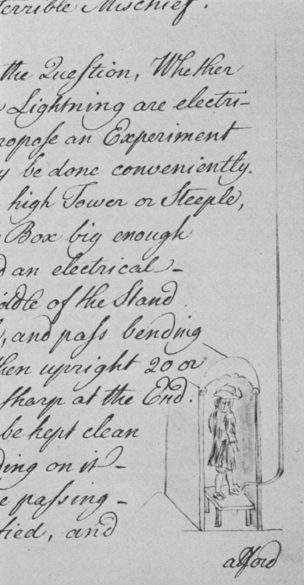 terrible Mischief.
the Question, Whether
Lightning are electri-
ropose an Experiment
y be done conveniently.
high Tower or Steeple,
Box big enough
d an electrical
iddle of the Stand
, and pass bending
hen upright 20 or
sharp at the End.
be kept clean
ding on it
e passing
tied, and
afford